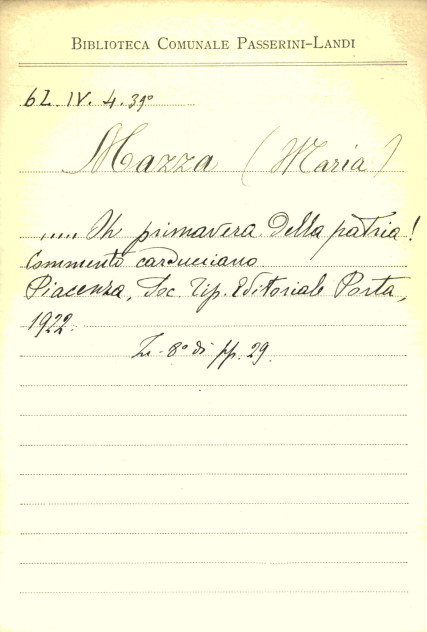 BIBLIOTECA COMUNALE PASSERINI-LANDI
6L. IV. 4. 39°
Mazza (Maria)
..... Oh primavera della patria!
Commento carducciano
Piacenza, Soc. Tip. Editoriale Porta,
1922.
In-8° di pp. 29.